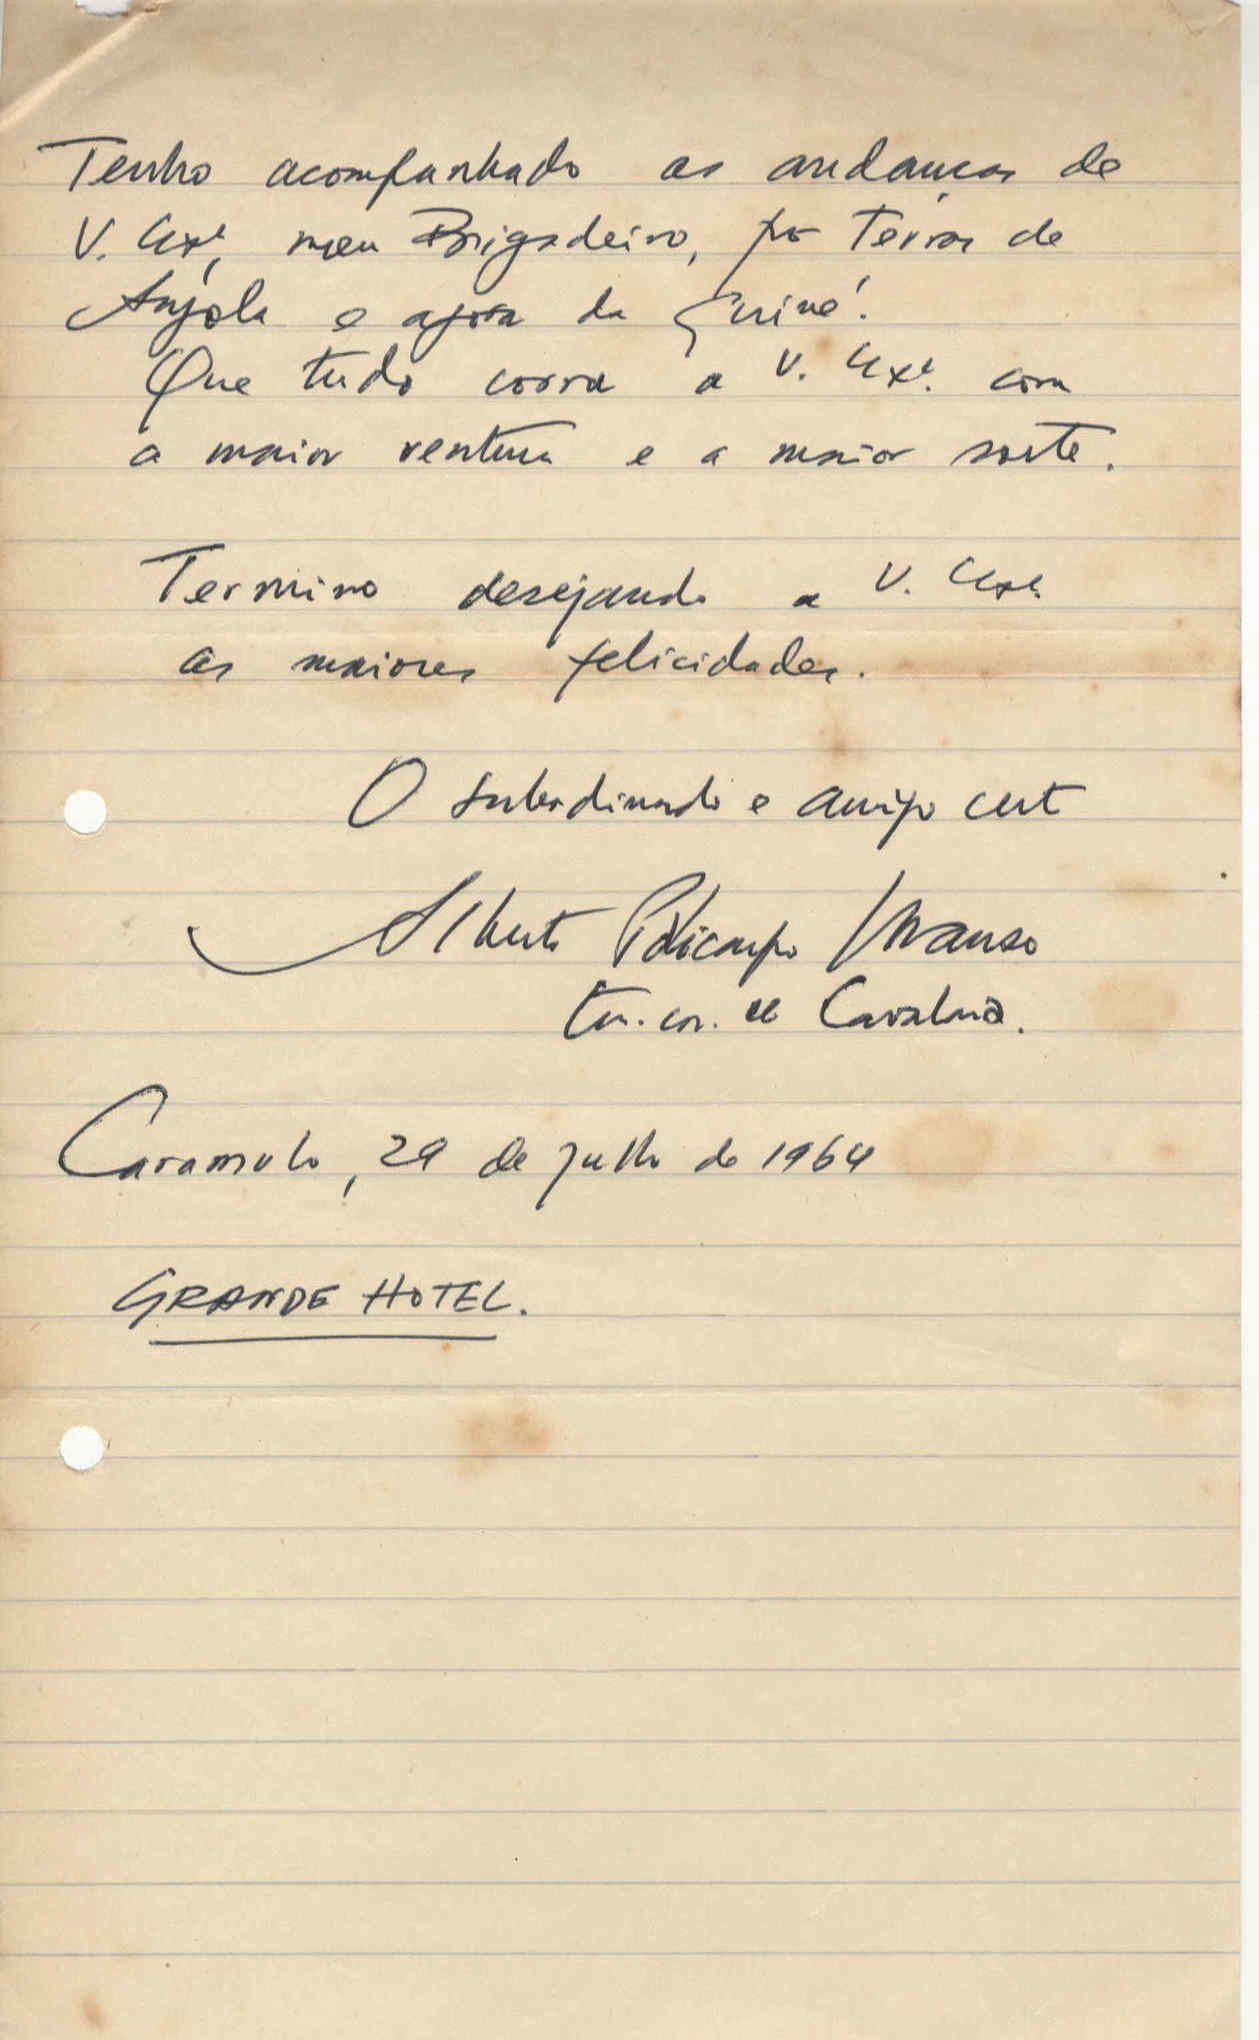 Tenho acompanhado as andanças de
V. Exª, meu Brigadeiro, por Terras de
Angola e agora da Guiné!
Que tudo corra a V. Exª. com
a maior ventura e a maior sorte.
Termino desejando a V. Exª.
as maiores felicidades.
O subordinado e amigo certo
Alberto Policarpo Manso
Ten. cor. de Cavalaria.
Caramulo, 29 de julho de 1964
GRANDE HOTEL.